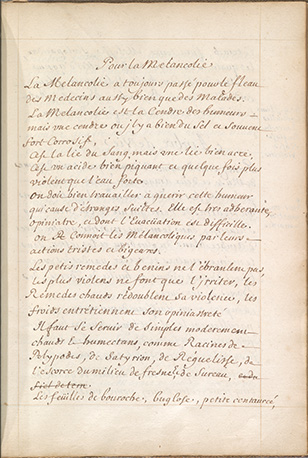 Pour la Melancolie
La Melancolie a toujours passé pour le fleau
des Medecins aussy bien que des Malades.
La Melancolie est la Cendre des humeurs
mais une cendre ou il y a bien du Sel et Souvent
fort Corrosif,
C'est la lie du Sang mais une lie bien acre,
C'est un acide bien piquant et quelque fois plus
violent que l'eau forte,
On doit bien travailler a guerir cette humeur
qui cause d'étranges suittes. Elle est tres adherante,
opiniatre, et dont l'Evacuation est difficille.
on Connoit les Mélancoliques par leurs
actions tristes et bigearres.
Les petis remedes et benins ne l'ébranlent pas,
les plus violens ne font que l'jrriter, les
Remedes chauds redoublent Sa violence, les
froids entretiennent Son opiniastreté
Il faut se Servir de Simples moderement
chauds & humectans, comme Racines de
Polypodes, de Satyrion, de Reguelisse, de
l'escorce du milieu de fresne, & de Sureau,
Les feüilles de bouroche, buglose, petite centaureé,